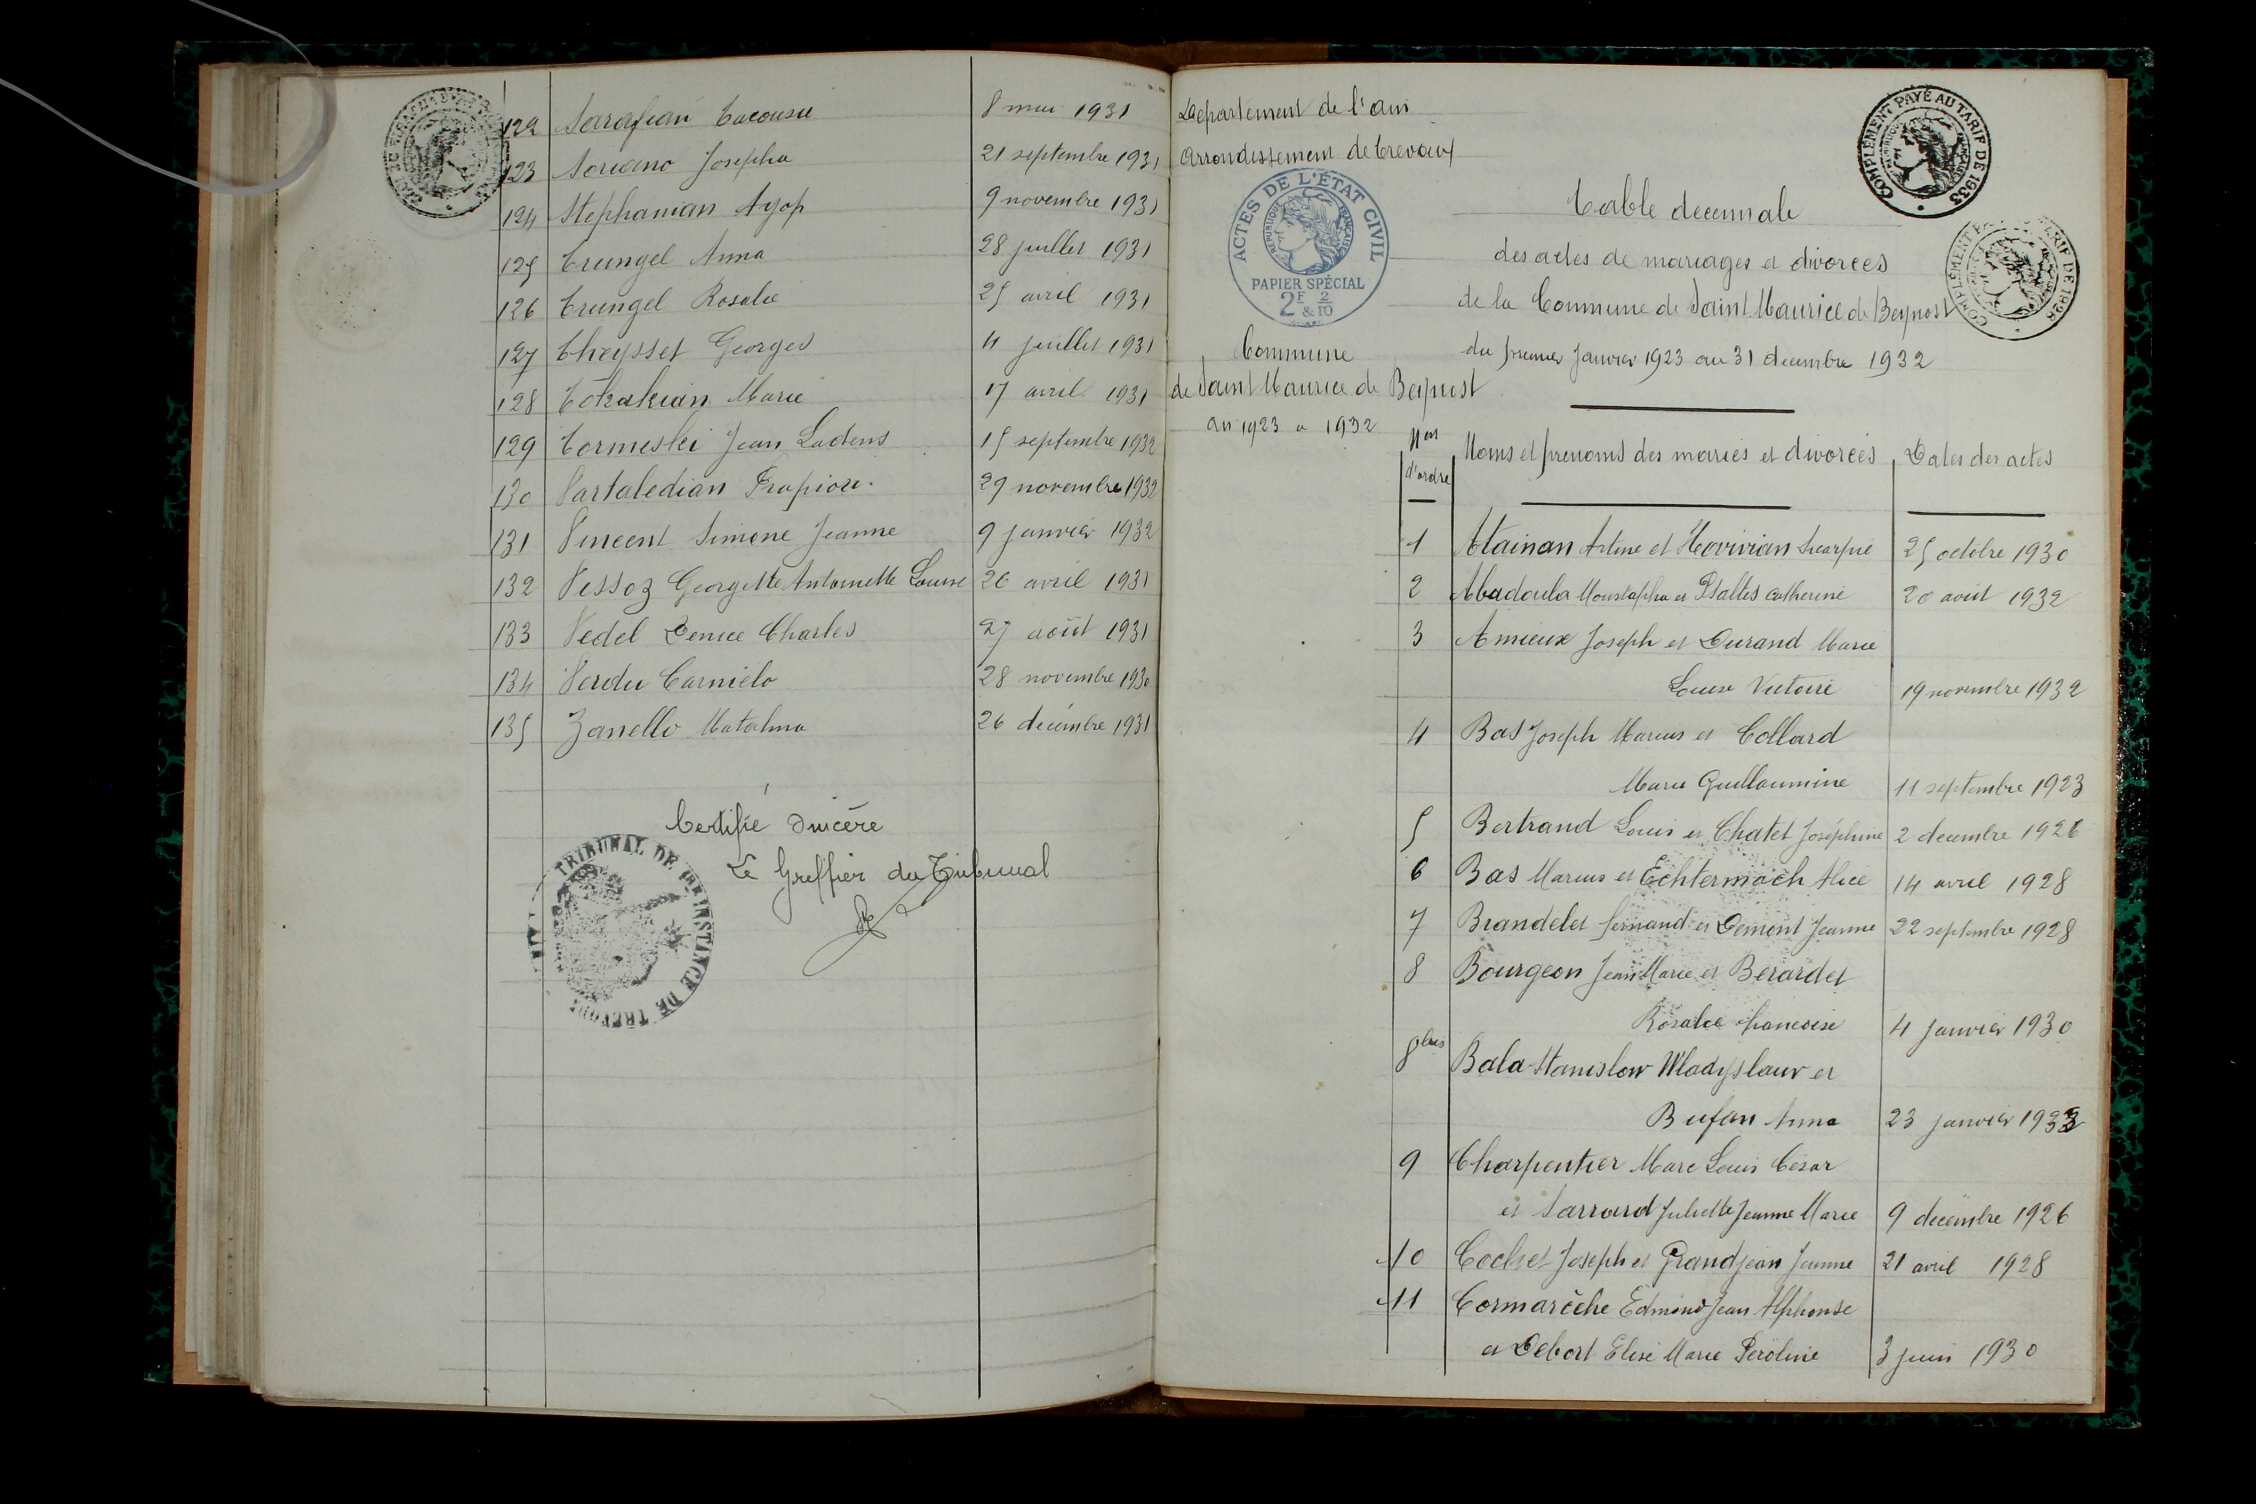 122 Sarafian 8 mai 1931
123 Soriano Josepha 21 septembre 1931
124 Stephanian Agop 9 novembre 1931
125 Trungel Anna 28 juillet 1931
126 Trungel Rosalie 25 avril 1931
127 Theysset Georges 11 juillet 1931
128 Tokakian Marie 17 avril 1931
129 Tormeski Jean 15 septembre 1932
130 Vartaledian 29 novembre 1932
131 Vincent Simone Jeanne 9 janvier 1932
132 Vessoz Georgette Antoinette Louise 26 avril 1931
133 Vedel Denice Charles 27 août 1931
134 Verdu Carmelo 28 novembre 1930
135 Zanello Natalina 26 décembre 1931
Certifié Sincère
Le Greffier du Tribunal
TRIBUNAL DE 1RE INSTANCE DE TRÉVOUX
Département de l'ain
arrondissement de trevoux
ACTES DE L'ÉTAT CIVIL
RÉPUBLIQUE FRANÇAISE
PAPIER SPÉCIAL
2F & 2/10
COMPLÉMENT PAYÉ AU TARIF DE 1933
Table decennale
des actes de mariages et divorces
de la Commune de Saint Maurice de Beynost
du premier Janvier 1923 au 31 decembre 1932
Commune
de Saint Maurice de Beynost
an 1923 a 1932
Nos d'ordre Noms et prenoms des mariés et divorcés Dates des actes
1 Atainan Artine et Hovivian 25 octobre 1930
2 Abadoula Moustapha et Psalles Catherine 20 août 1932
3 Amieux Joseph et Durand Marie
Louise Victoire 19 novembre 1932
4 Bas Joseph Marius et Collard
Marie Guillaumine 11 septembre 1923
5 Bertrand Louis et Chatel Joséphine 2 decembre 1926
6 Bas Marius et Echternach Alice 14 avril 1928
7 Brandelet fernand et Demont Jeanne 22 septembre 1928
8 Bourgeon Jean Marie et Berardet
Rosalie francoise 4 Janvier 1930
8 bis Bala Stanislow Wladyslauv et
Bufan Anna 23 Janvier 1932
9 Charpentier Marc Louis César
et Sarrard Juliette Jeanne Marie 9 decembre 1926
10 Cochet Joseph et Grandjean Jeanne 21 avril 1928
11 Cormarèche Edmond Jean Alphonse
et Debort Elise Marie Péroline 3 juin 1930